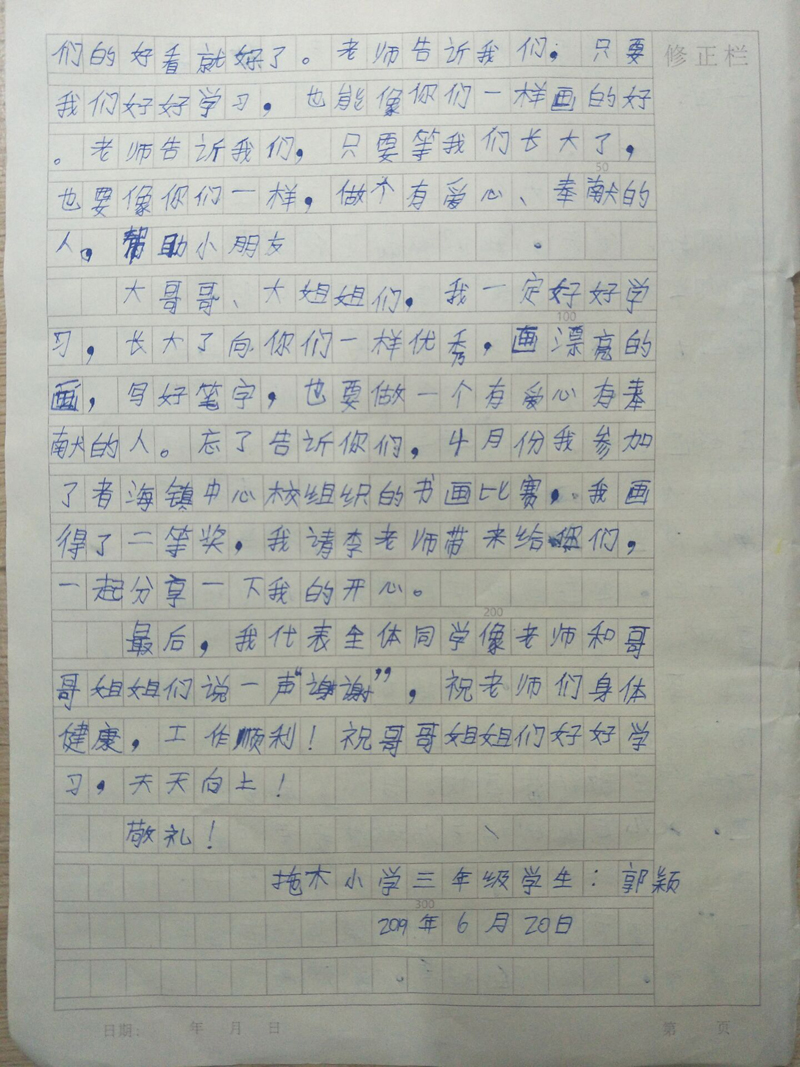 们的好看就好了。老师告诉我们，只要
修正栏
我们好好学习，也能像你们一样画的好
。老师告诉我们，只要等我们长大了，
50
也要像你们一样，做个有爱心、奉献的
人。帮助小朋友。
大哥哥、大姐姐们，我一定好好学
100
习，长大了向你们一样优秀，画漂亮的
画，写好笔字，也要做一个有爱心有奉
献的人。忘了告诉你们，4月份我参加
了者海镇中心校组织的书画比赛，我画
得了二等奖，我请李老师带来给你们，
一起分享一下我的开心。
200
最后，我代表全体同学像老师和哥
哥姐姐们说一声“谢谢”，祝老师们身体
健康，工作顺利！祝哥哥姐姐们好好学
习，天天向上！
敬礼！
拖木小学三年级学生：郭颖
300
2019年6月20日
日期： 年 月 日 第 页